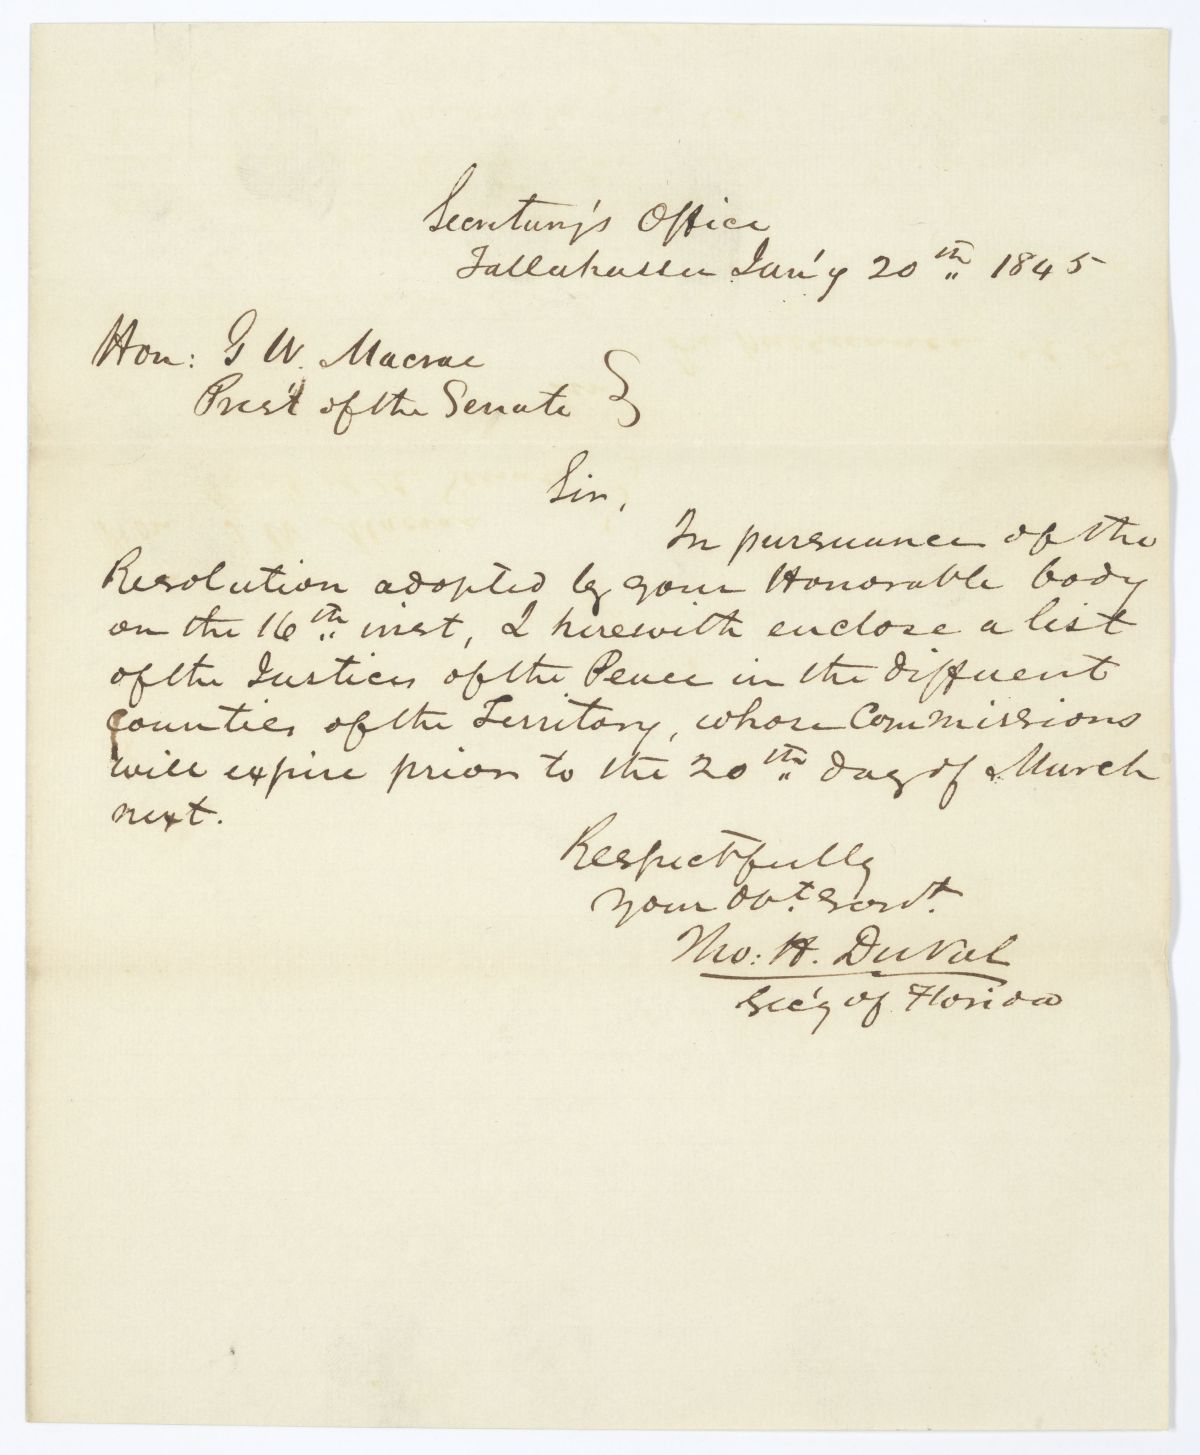 Secretary's Office
Tallahassee Jan'y 20th 1845
Hon: G W. Macrae
Pres't of the Senate
Sir,
In pursuance of the
Resolution adopted by your Honorable body
on the 16th inst, I herewith enclose a list
of the Justices of the Peace in the different
counties of the Territory, whose Commissions
will expire prior to the 20th day of March
next.
Respectfully
Your Obt. Servt.
Tho: H. DuVal
Sec'y of Florida